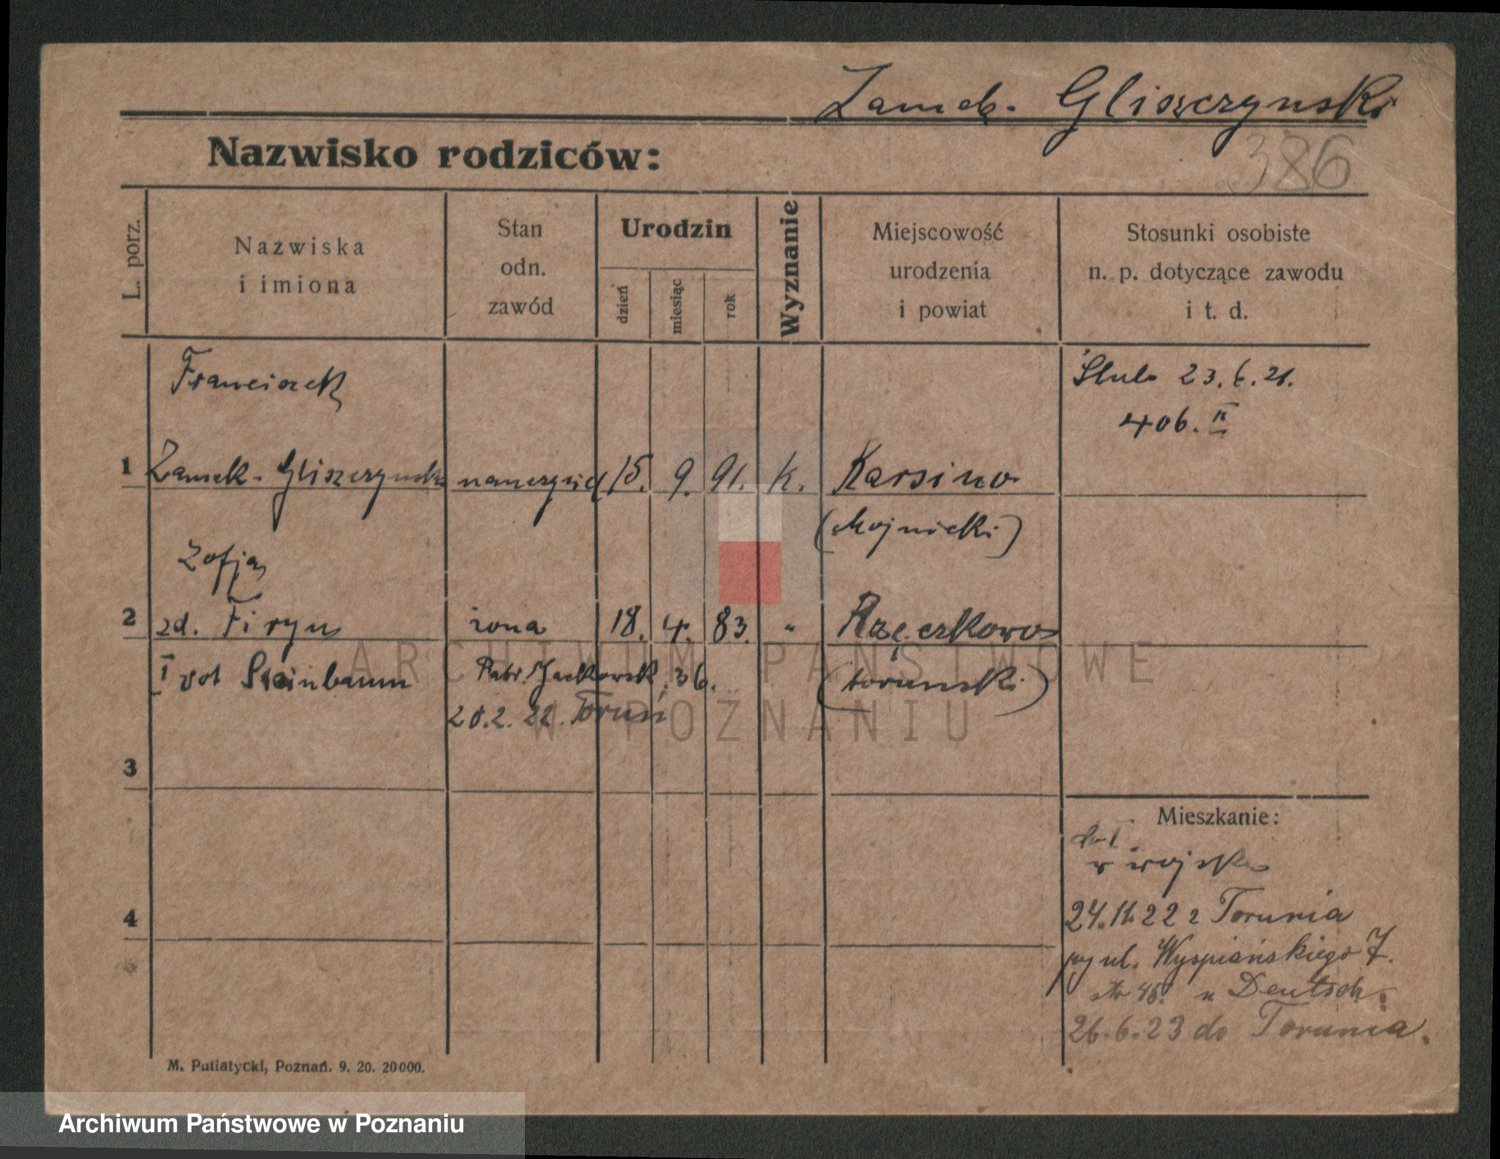 Zamek-Gliszczynski
386
Nazwisko rodziców:
L. porz.
Nazwiska
i imiona
Stan
odn.
zawód
Urodzin
dzień
miesiąc
rok
Wyznanie
Miejscowość
urodzenia
i powiat
Stosunki osobiste
n. p. dotyczące zawodu
i t. d.
Franciszek
Ślub 23.6.21.
406. II
1 Zamek-Gliszczynski nauczyciel 15. 9. 91. k. Karsino
(chojnicki)
Zofja
2 zd. Firyn żona 18. 4. 83. " Rzęczkowo
I vot Steinbaum Patr. Jackowsk. 36. (toruński)
28.2.22. Toruń
3
Mieszkanie:
w wojsku
4
24.11.22 z Torunia
przy ul. Wyspiańskiego 7.
u Deutsch.
26.6.23 do Torunia.
M. Putiatycki, Poznań. 9. 20. 20000.
ARCHIWUM PAŃSTWOWE
W POZNANIU
Archiwum Państwowe w Poznaniu